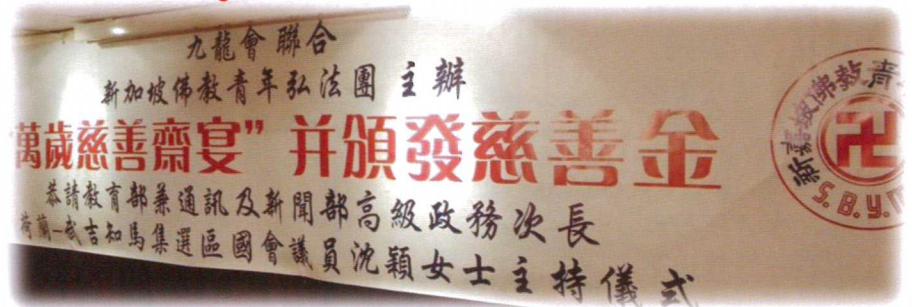 九龍會聯合
新加坡佛教青年弘法團 主辦
萬歲慈善齋宴” 并頒發慈善金
恭請教育部兼通訊及新聞部高級政務次長
荷蘭-武吉知馬集選區國會議員沈穎女士主持儀式
新嘉坡佛教青
S.B.Y.